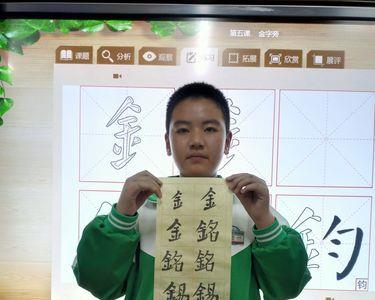 第五课 金字旁
课题 分析 观察 拓展 欣赏 展评
金
钧
钧
金 金
金 銘
銘 銘
錫 錫